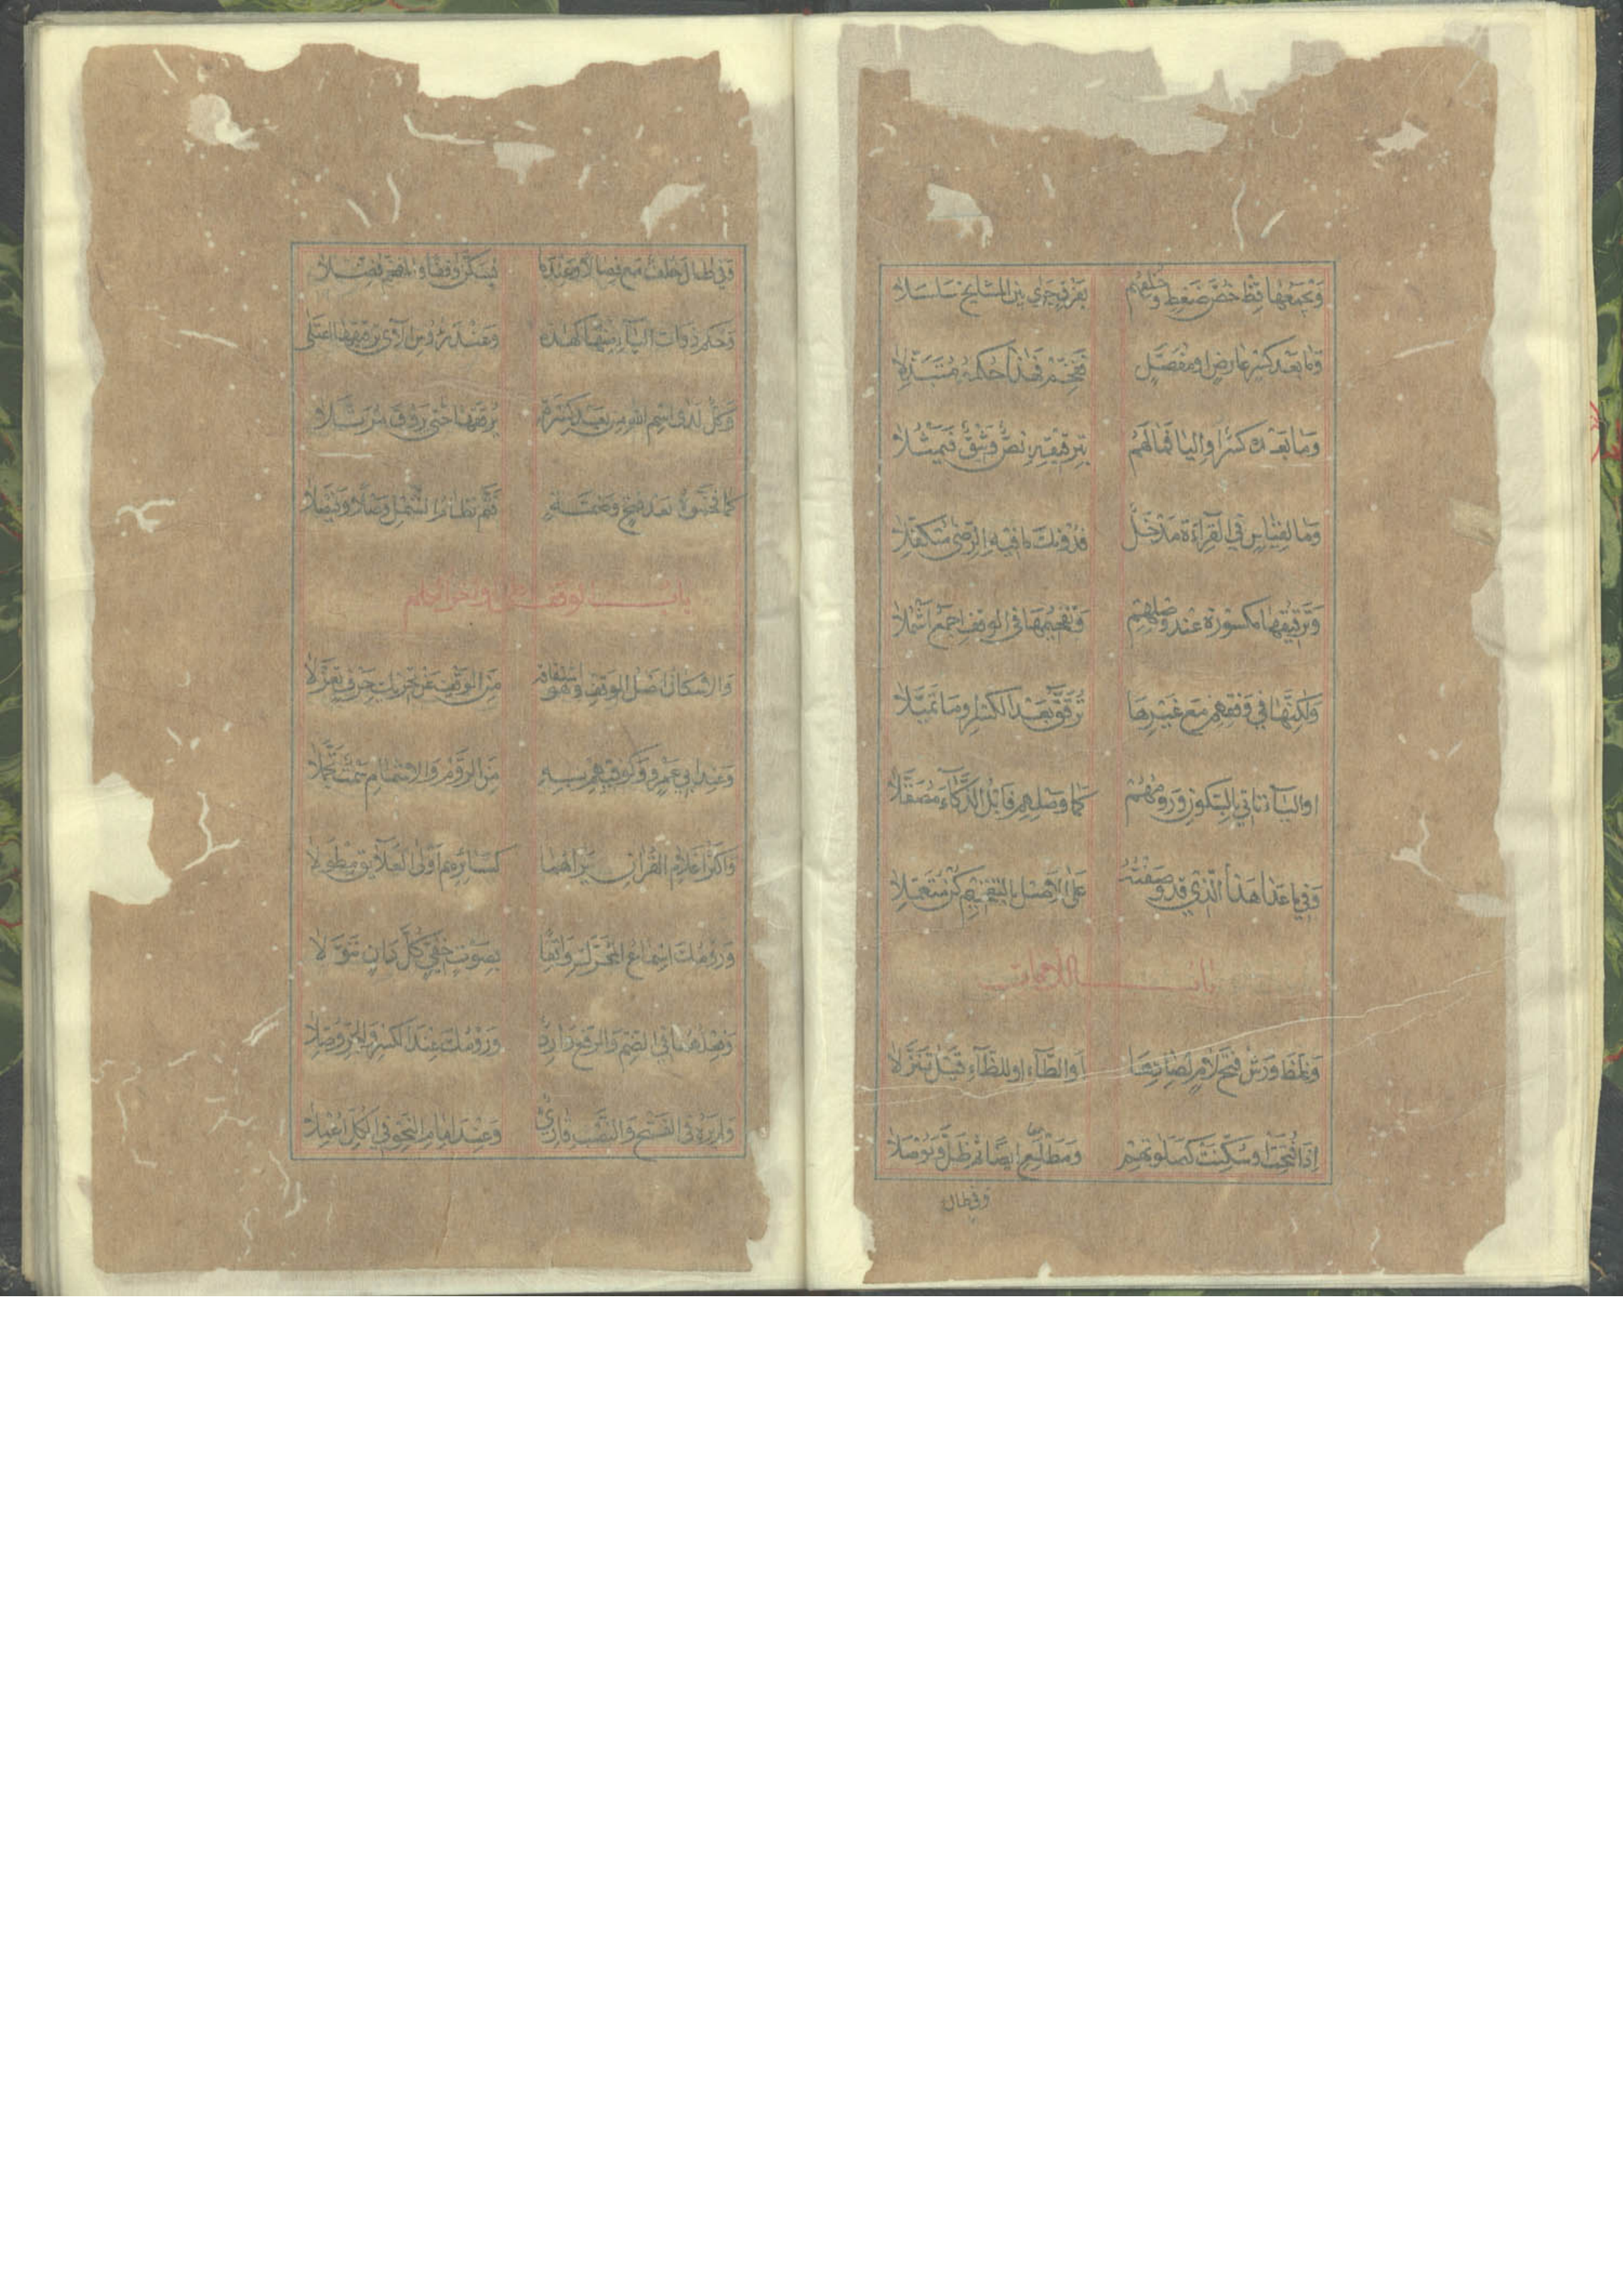 وَيَجْمَعُهَا قِظْ خُصَّ ضَغْطٍ وَخُلْفُهُمْ بِفِرْقٍ جَرَى بَيْنَ الْمَشَايِخِ سَلْسَلَا
وَمَا بَعْدَ كَسْرٍ عَارِضٍ اَوْ مُفَصَّلٍ فَفَخِّمْ فَهٰذَا حُكْمُهُ مُتَبَذِّلَا
وَمَا بَعْدَهُ كَسْرٌ اَوِ الْيَا فَمَا لَهُمْ بِتَرْقِيقِهِ نَصٌّ وَثِيقٌ فَيَمْثُلَا
وَمَا لِقِيَاسٍ فِي الْقِرَاءَةِ مَدْخَلٌ فَدُونَكَ مَا فِيهِ الرِّضٰى مُتَكَفِّلَا
وَتَرْقِيقُهَا مَكْسُورَةً عِنْدَ وَصْلِهِمْ وَتَفْخِيمُهَا فِي الْوَقْفِ اَجْمَعُ اَشْمُلَا
وَلٰكِنَّهَا فِي وَقْفِهِمْ مَعَ غَيْرِهَا تُرَقَّقُ بَعْدَ الْكَسْرِ اَوْ مَا تَمَيَّلَا
اَوِ الْيَاءِ تَاْتِي بِالسُّكُونِ وَرَوْمُهُمْ كَمَا وَصْلِهِمْ فَابْلُ الذَّكَاءَ مُصَقَّلَا
وَفِيمَا عَدَا هٰذَا الَّذِي قَدْ وَصَفْتُهُ عَلَى الْاَصْلِ بِالتَّفْخِيمِ كُنْ مُتَعَمِّلَا
باب اللامات
وَغَلَّظَ وَرْشٌ فَتْحَ لَامٍ لِصَادِهَا اَوِ الطَّاءِ اَوْ لِلظَّاءِ قَبْلُ تَنَزُّلَا
اِذَا فُتِحَتْ اَوْ سُكِّنَتْ كَصَلَوتِهِمْ وَمَطْلَعِ اَيْضًا ثُمَّ ظَلَّ وَيُوصَلَا
وفي طال
وَفِي طَالَ خُلْفٌ مَعْ فِصَالًا وَعِنْدَمَا يُسَكَّنُ وَقْفًا وَالْمُفَخَّمُ فُضِّلَا
وَحُكْمُ ذَوَاتِ الْيَاءِ مِنْهَا كَهٰذِهِ وَعِنْدَ رُؤُسِ الْآيِ تَرْقِيقُهَا اعْتَلَى
وَكُلٌّ لَدَى اسْمِ اللهِ مِنْ بَعْدِ كَسْرَةٍ يُرَقِّقُهَا حَتّٰى يَرُوقَ مُرَتَّلَا
كَمَا فَخَّمُوهُ بَعْدَ فَتْحٍ وَضَمَّةٍ فَتَمَّ نِظَامُ الشَّمْلِ وَصْلًا وَفَيْصَلَا
باب الوقف على اواخر الكلم
وَالْاِسْكَانُ اَصْلُ الْوَقْفِ وَهُوَ اشْتِقَاقُهُ مِنَ الْوَقْفِ عَنْ تَحْرِيكِ حَرْفٍ تَعَزَّلَا
وَعِنْدَ اَبِي عَمْرٍو وَكُوفِيِّهِمْ بِهِ مِنَ الرَّوْمِ وَالْاِشْمَامِ سَمْتٌ تَجَمَّلَا
وَاَكْثَرُ اَعْلَامِ الْقُرَانِ يَرَاهُمَا لِسَائِرِهِمْ اَوْلَى الْعَلَائِقِ مِطْوَلَا
وَرَوْمُكَ اِسْمَاعُ الْمُحَرَّكِ وَاقِفًا بِصَوْتٍ خَفِيٍّ كُلَّ دَانٍ تَنَوَّلَا
وَفِعْلُهُمَا فِي الضَّمِّ وَالرَّفْعِ وَارِدٌ وَرَوْمُكَ عِنْدَ الْكَسْرِ وَالْجَرِّ وُصِّلَا
وَلَمْ يَرَهُ فِي الْفَتْحِ وَالنَّصْبِ قَارِئٌ وَعِنْدَ اِمَامِ النَّحْوِ فِي الْكُلِّ اُعْمِلَا